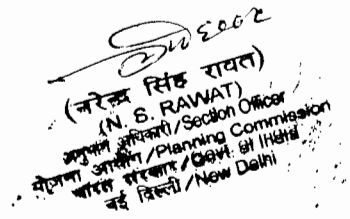 (नरेन्द्र सिंह रावत)
(N. S. RAWAT)
अनुभाग अधिकारी/Section Officer
योजना आयोग/Planning Commission
भारत सरकार/Govt. of India
नई दिल्ली/New Delhi